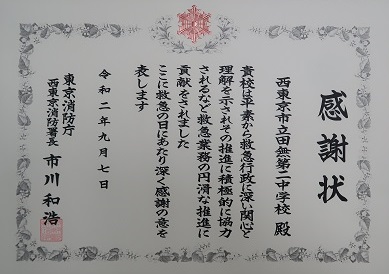 感謝状
西東京市立田無第二中学校 殿
貴校は平素から救急行政に深い関心と
理解を示されその推進に積極的に協力
されるなど救急業務の円滑な推進に
貢献をされました
ここに救急の日にあたり深く感謝の意を
表します
令和二年九月七日
東京消防庁
西東京消防署長 市川和浩